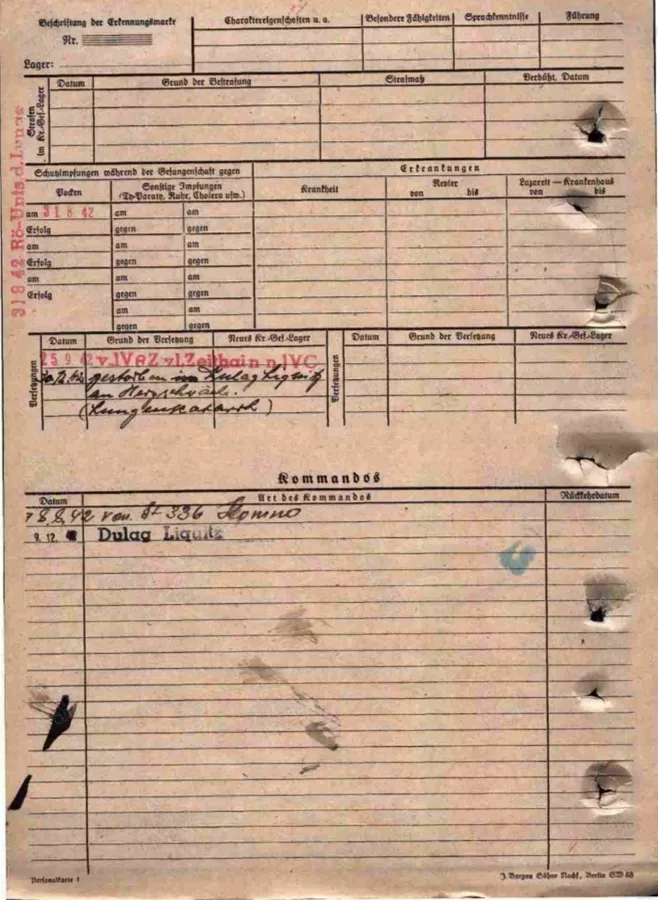 Beschriftung der Erkennungsmarke
Nr.
Lager:
Charaktereigenschaften u. a.
Besondere Fähigkeiten
Sprachkenntnisse
Führung
Strafen im Kr.-Gef.-Lager
Datum
Grund der Bestrafung
Strafmaß
Verbüßt, Datum
31 8 42 Rö-Unts d. Lunge
Schutzimpfungen während der Gefangenschaft gegen
Erkrankungen
Pocken
Sonstige Impfungen
(Ty-Paraty, Ruhr, Cholera usw.)
Krankheit
Revier
von bis
Lazarett — Krankenhaus
von bis
am 31 8 42 am am
Erfolg gegen gegen
am am am
Erfolg gegen gegen
am am am
Erfolg gegen gegen
am am
gegen gegen
Versetzungen
Datum
Grund der Versetzung
Neues Kr.-Gef.-Lager
Versetzungen
Datum
Grund der Versetzung
Neues Kr.-Gef.-Lager
25 9 42 v. IV Zeithain n. IVC
gestorben im Dulag Lignitz
an Herzschwäche.
(Lungenkatarrh)
Kommandos
Datum
Art des Kommandos
Rückkehrdatum
8.8.42 von St 336
9.12. Dulag Liquitz
Personalkarte 1
J. Bargou Söhne Nachf., Berlin SW 68